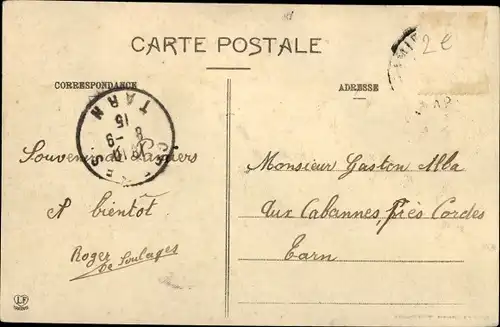 CARTE POSTALE
2e
CORRESPONDANCE
ADRESSE
TARN
15
8 - 9
CORDES
Souvenir de Pamiers
A bientôt
Roger
de Soulages
Monsieur Gaston Alba
aux Cabannes, près Cordes
Tarn
LF